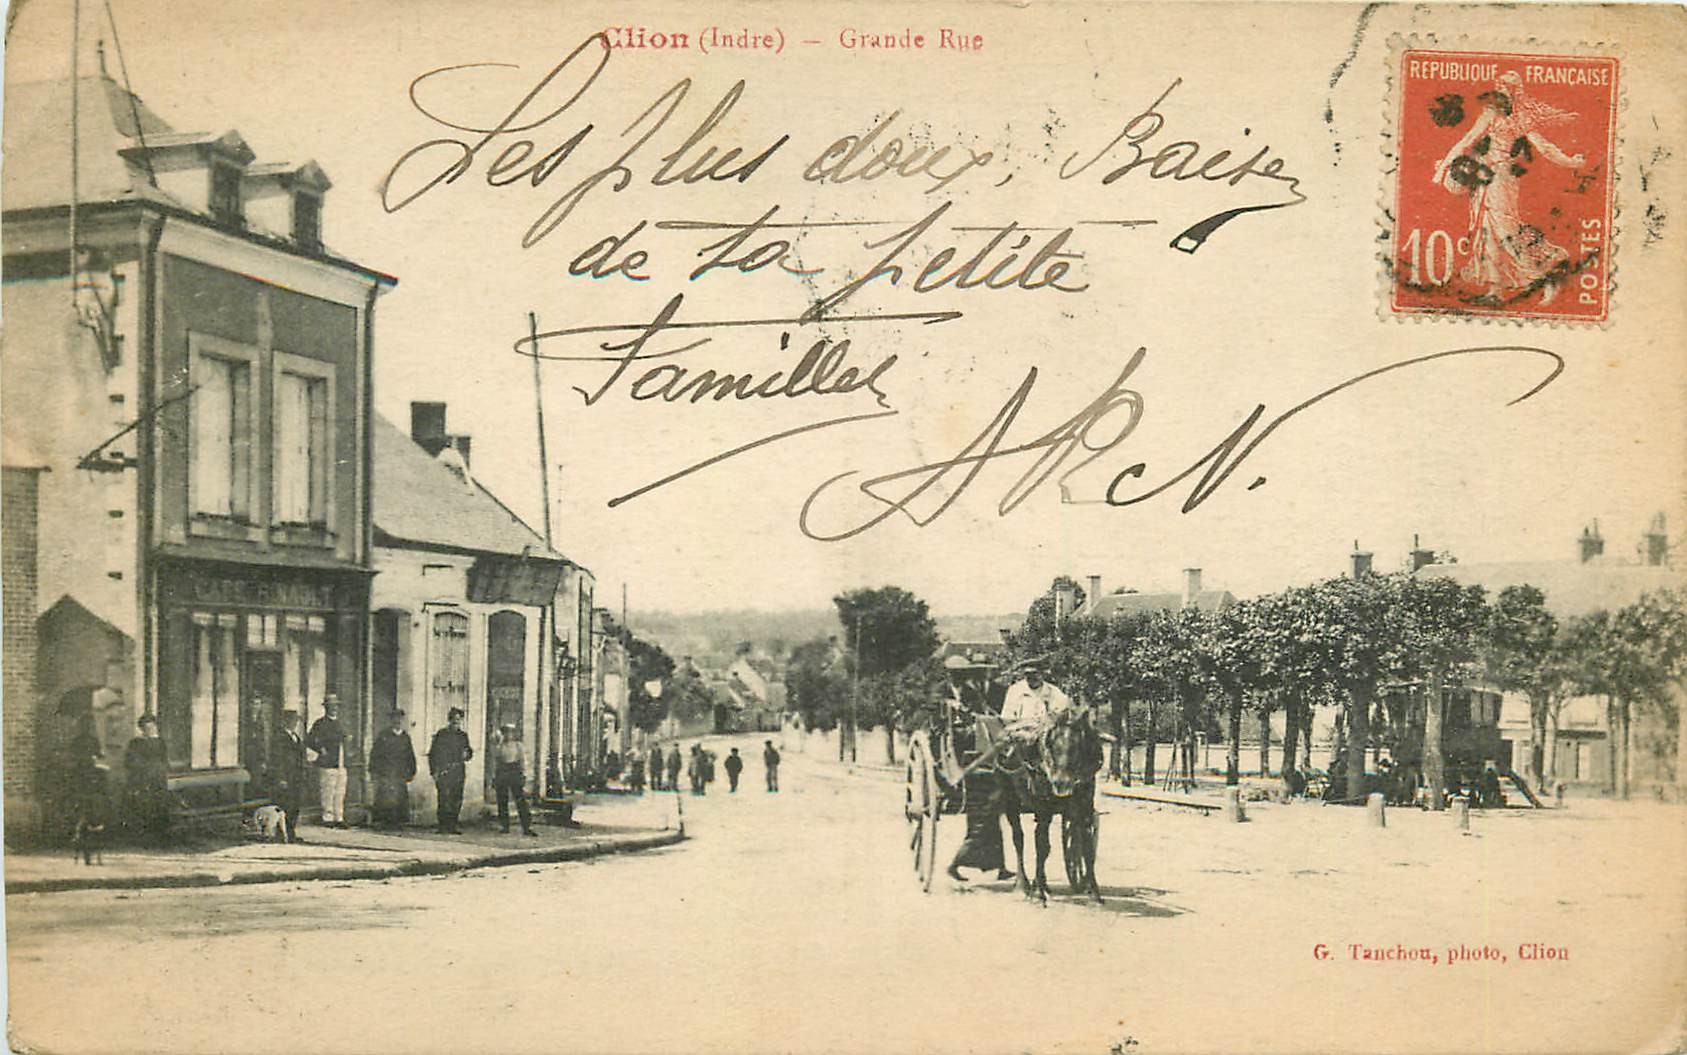 Clion (Indre) – Grande Rue
REPUBLIQUE FRANÇAISE
10 c
POSTES
Les plus doux Baiser
de ta petite
Famille
CAFE RENAULT
G. Tanchou, photo, Clion